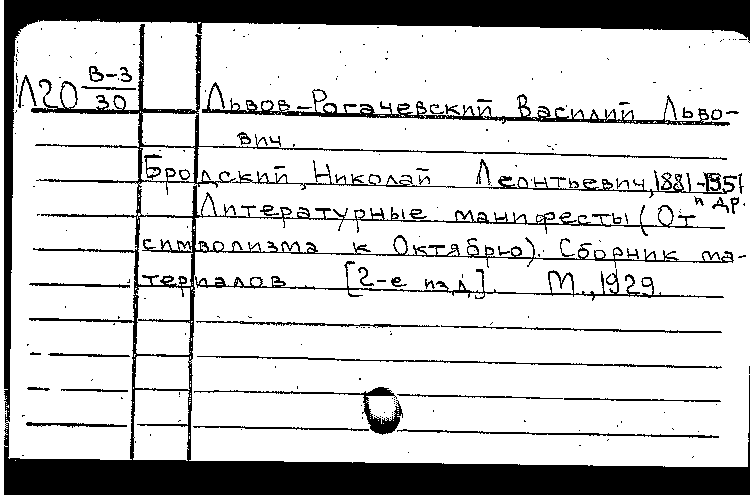 Л20 В-3/30 Львов-Рогачевский, Василий Льво-
вич.
Бродский, Николай Леонтьевич, 1881-1951
и др.
Литературные манифесты (От
символизма к Октябрю). Сборник ма-
териалов [2-е изд.]. М., 1929.